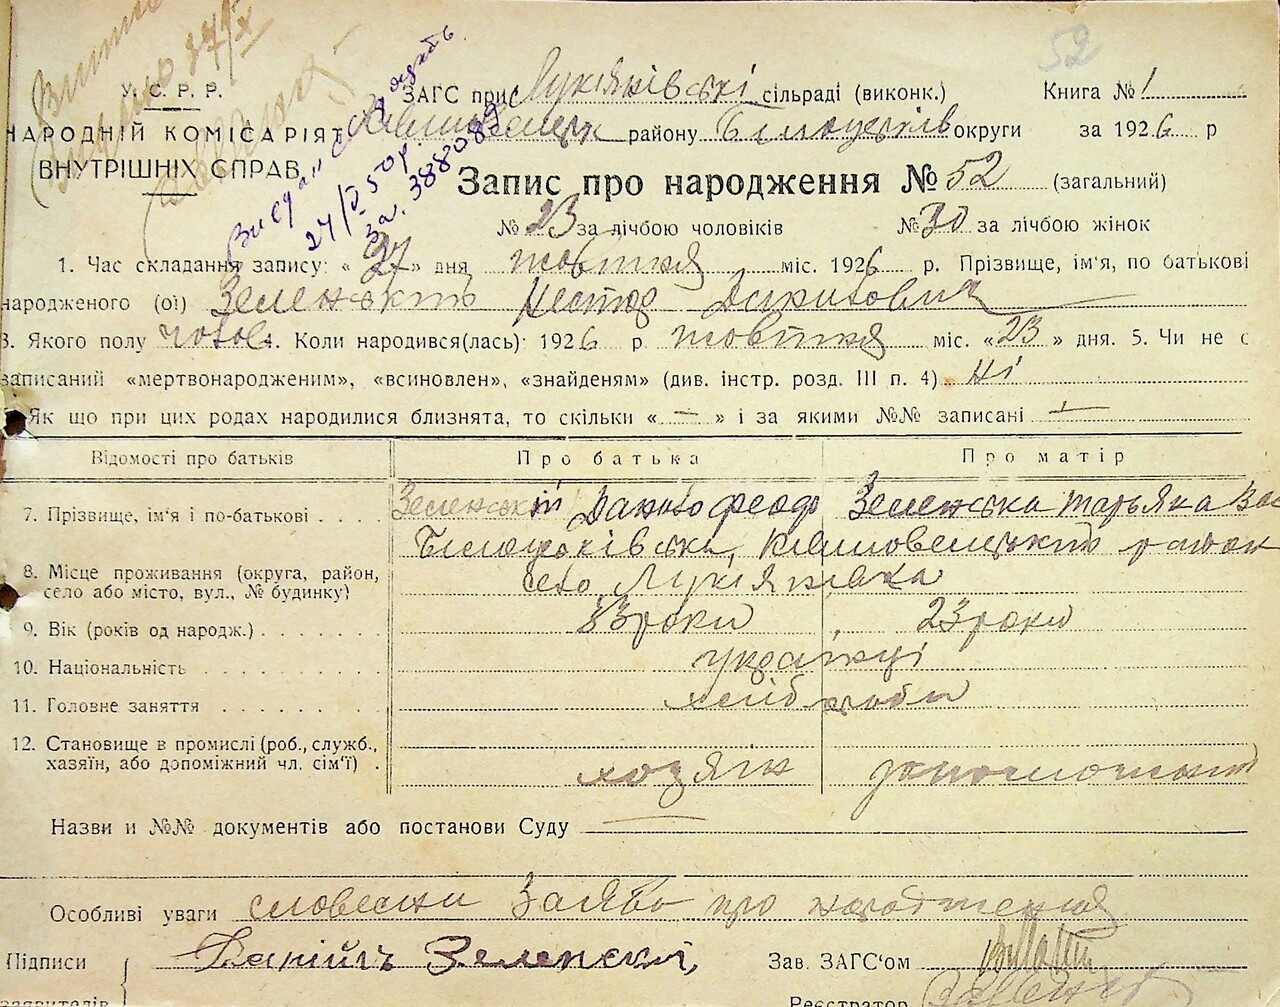 52
У. С. Р. Р.
НАРОДНІЙ КОМІСАРІЯТ
ВНУТРІШНІХ СПРАВ
Видан
27/I 50р.
за. 388089
ЗАГС при Лукіянівські сільраді (виконк.) Книга № 1
району Білоцерків округи за 1926 р
Запис про народження № 52 (загальний)
№ 23 за лічбою чоловіків № 30 за лічбою жінок
1. Час складання запису: « 27 » дня жовтня міс. 1926 р. Прізвище, ім'я, по батькові
народженого (ої) Зеленський Нестор Данилович
3. Якого полу чолов 4. Коли народився(лась): 1926 р жовтня міс. « 23 » дня. 5. Чи не є
записаний «мертвонародженим», «всиновлен», «знайденям» (див. інстр. розд. III п. 4) ні
Як що при цих родах народилися близнята, то скільки « — » і за якими №№ записані —
Відомості про батьків Про батька Про матір
7. Прізвище, ім'я і по-батькові . . . Зеленський Данило Феод Зеленська Тарьяна
Білоцерківська, район
8. Місце проживання (округа, район,
село або місто, вул., № будинку) село Лукіянівка
9. Вік (років од народж.) 33 роки 23 роки
10. Національність українці
11. Головне заняття хліборобы
12. Становище в промислі (роб., служб.,
хазяїн, або допоміжний чл. сім'ї) . хозяін
Назви и №№ документів або постанови Суду —
Особливі уваги словесни Заява про народження
Підписи Даніилъ Зеленскій, Зав. ЗАГС'ом
заявителів Реєстратор